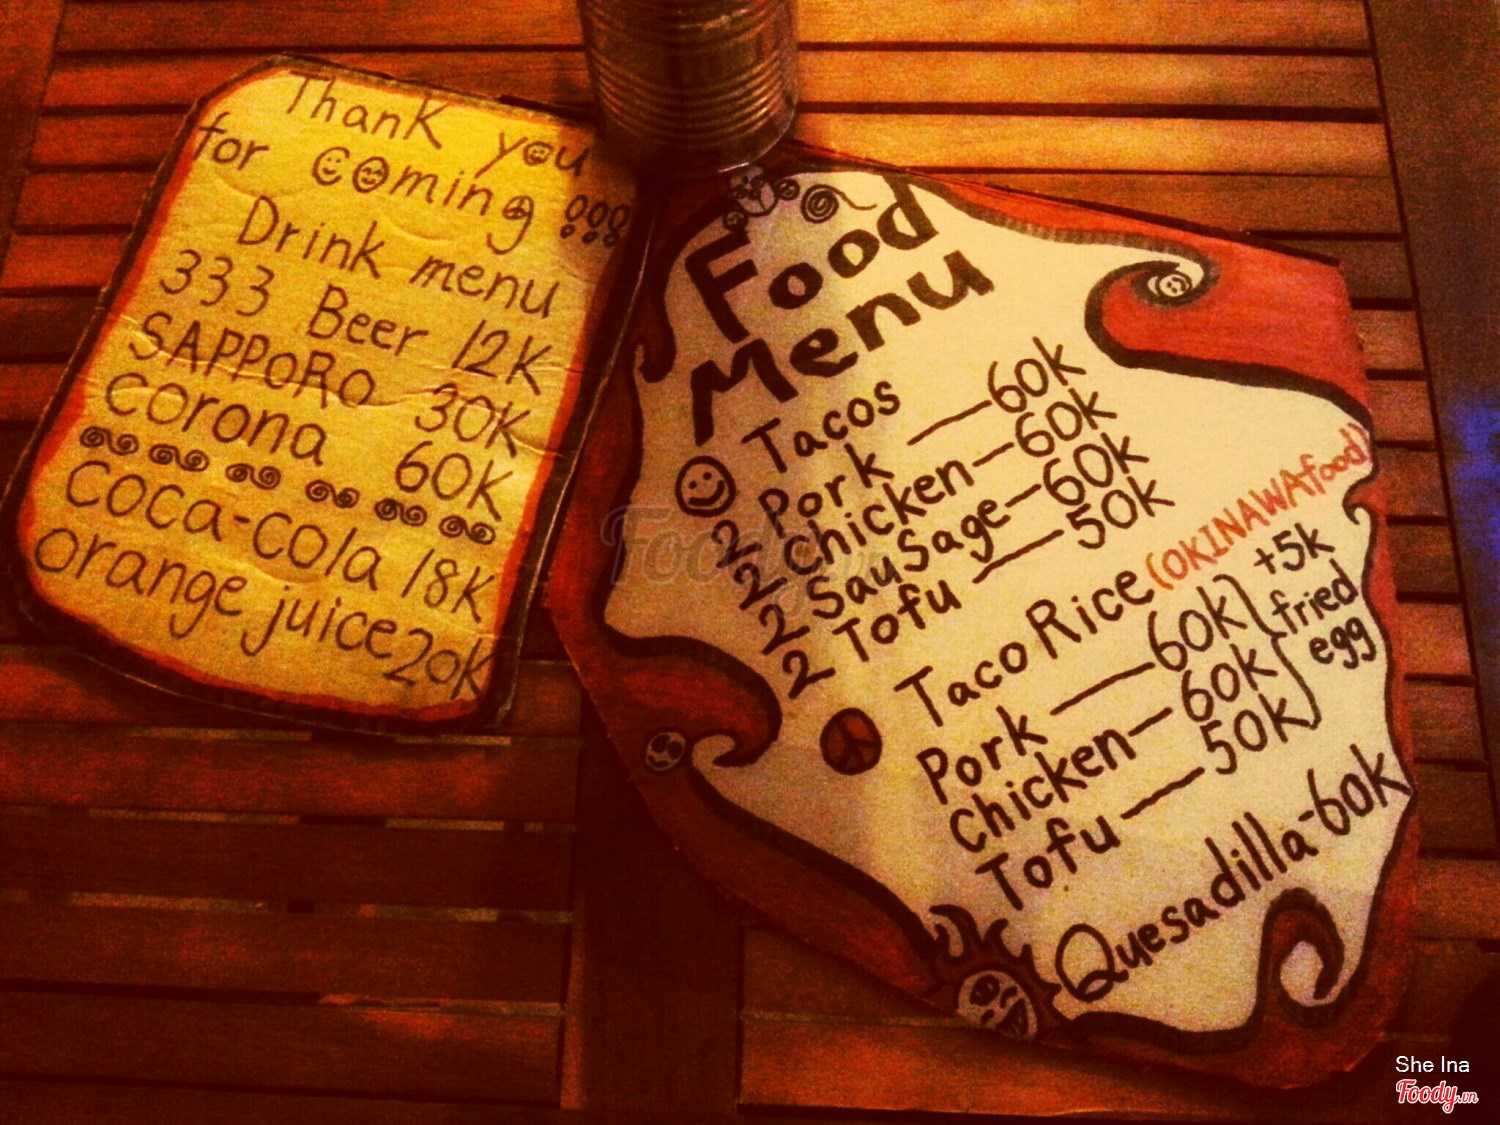 Thank you
for coming !!!
Drink menu
333 Beer 12K
SAPPORO 30K
corona 60K
coca-cola 18K
orange juice 20K
Food
Menu
Tacos
2 Pork — 60K
2 chicken — 60K
2 Sausage — 60K
2 Tofu — 50K
Taco Rice (OKINAWA food)
Pork — 60K
chicken — 60K
Tofu — 50K
+5K
fried
egg
Quesadilla - 60K
Foody
She Ina
Foody.vn